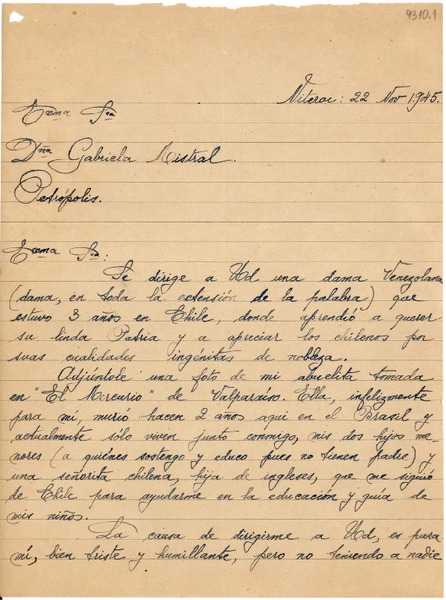 4310.1
Niteroi: 22 Nov 1.945.
Exma Sra
Dña Gabriela Mistral.
Petrópolis.
Exma Sra:
Se dirige a Ud una dama Venezolana
(dama, en toda la extensión de la palabra) que
estuvo 3 años en Chile, donde aprendió a querer
su linda Patria y a apreciar los chilenos por
suas cualidades ingénitas de nobleza.
Adjúntole una foto de mi abuelita tomada
en "El Mercurio" de Valparaiso. Ella, infelizmente
para mí, murió hacen 2 años aqui en el Brasil y
actualmente sólo viven junto conmigo, mis dos hijos me
nores (a quiénes sostengo y educo pues no tienen padre) y
una señorita chilena, hija de ingleses, que me siguió
de Chile para ayudarme en la educación y guia de
mis niños.
La causa de dirigirme a Ud, es para
mí, bien triste y humillante, pero no teniendo a nadie